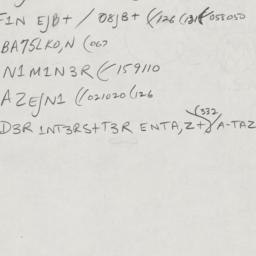 F1N EJB+ / 08JB+ (126 (131 055050
BA75LKO,N (067
N1M1N3R (159110
AZEJN1 (021020 (126
(332
D3R 1NT3RS+T3R ENTA,Z+ A-TAZ